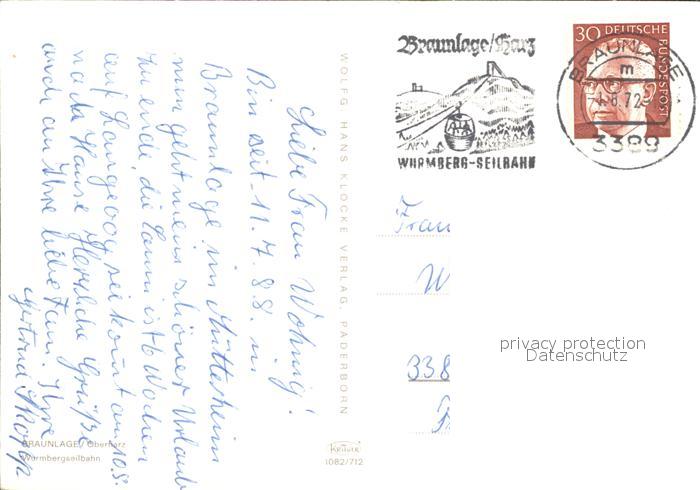 Braunlage/Harz
WURMBERG-SEILBAHN
30 DEUTSCHE
BUNDESPOST
BRAUNLAGE
m
8.72
3389
Liebe Frau Wohnig!
Bin seit 11.7. 8.8. in
Braunlage im Mütterheim
nun geht mein schöner Urlaub
zu ende, die Hanni ist 6 Wochen
auf Langeoog sie komt am 10.8.
nach Hause. Herzliche Grüße
auch an Ihre liebe Fam. Ihre
Gertrud
WOLFG. HANS KLOCKE VERLAG, PADERBORN
Frau
W
338
privacy protection
Datenschutz
BRAUNLAGE/Oberharz
Wurmbergseilbahn
Krüger
1082/712